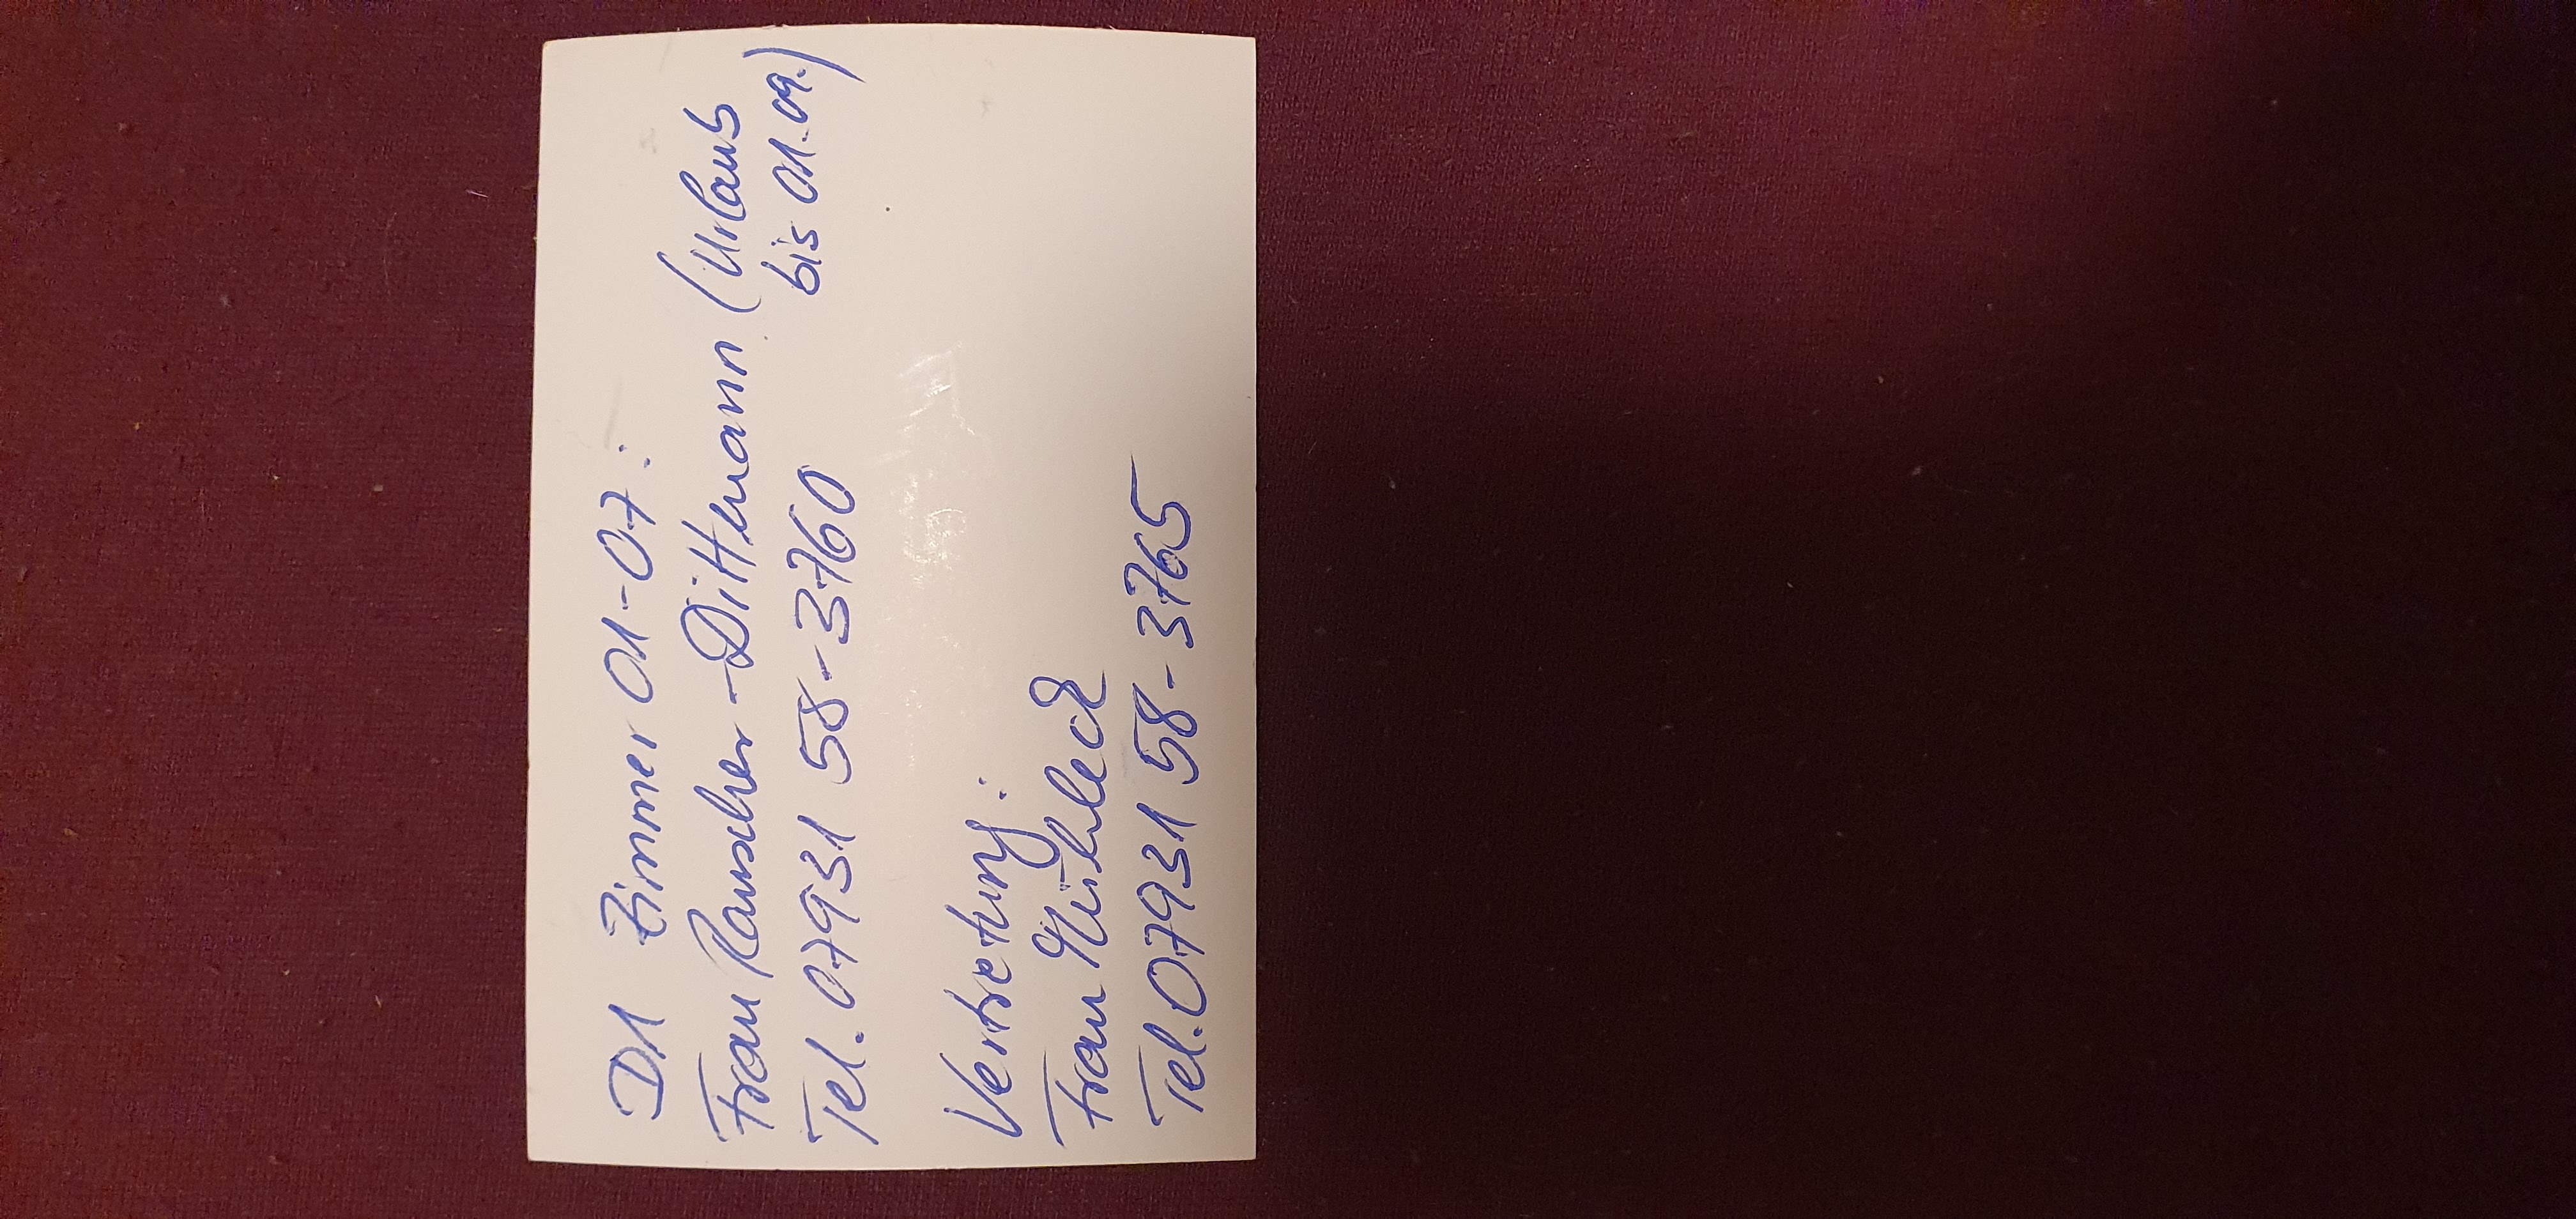 D1 Zimmer 01-07:
Frau Rauscher-Dittmann (Urlaub
bis 01.09.)
Tel. 07931 58-3760
Vertretung:
Frau Mühleck
Tel. 07931 58-3765